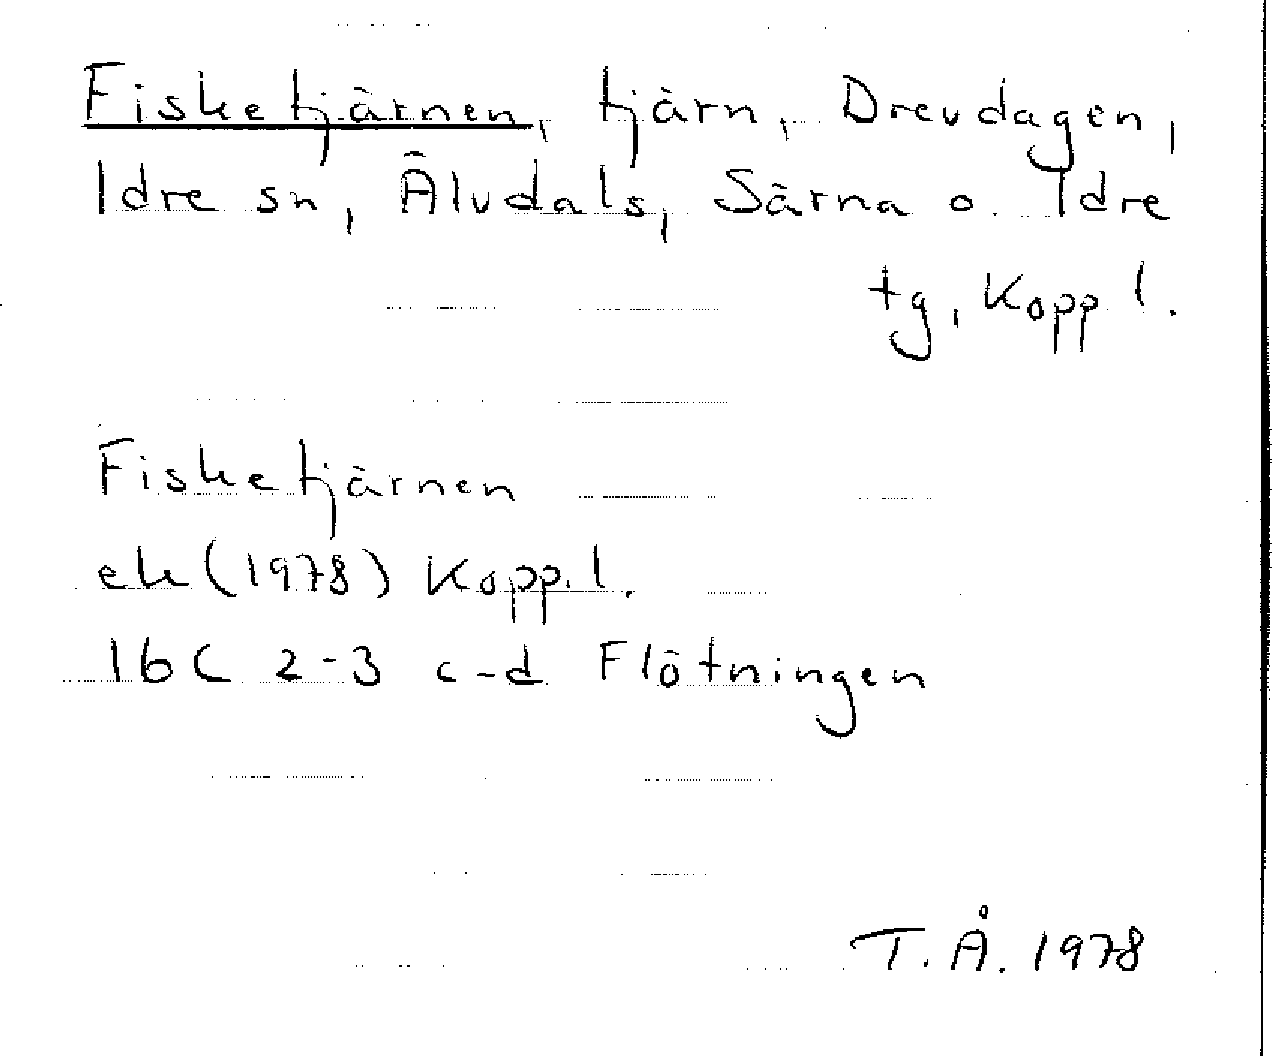 Fisketjärnen, tjärn, Drevdagen,
Idre sn, Älvdals, Särna o. Idre
tg, Kopp l.
Fisketjärnen
ek (1978) Kopp. l.
16C 2-3 c-d Flötningen
T.Å. 1978